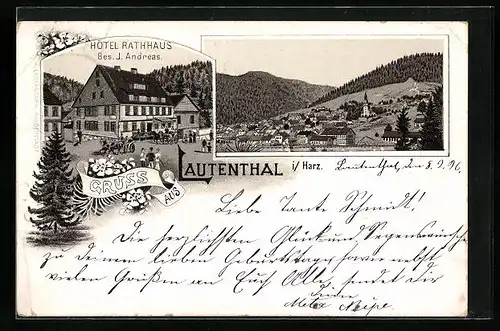 HOTEL RATHHAUS
Bes. J. Andreas.
GRUSS
AUS
LAUTENTHAL i/Harz.
Lautenthal, den 8.9.96.
Liebe Tante Schmidt!
Die herzlichsten Glück und Segenswünsche
zu Deinem lieben Geburtstage sowie nebst
vielen Grüßen an Euch Alle, sendet Dir